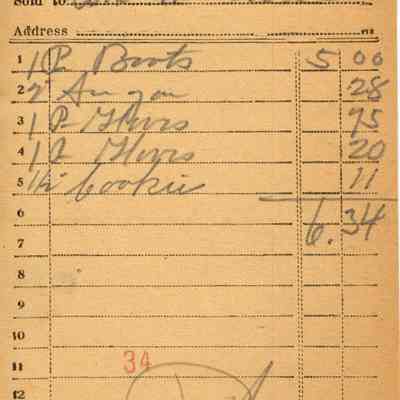 Sold to
Address
1 1 P Boots 5 00
2 28
3 1 P Gloves 75
4 1 P Gloves 20
5 cookie 11
6 6.34
7
8
9
10
11 34
12